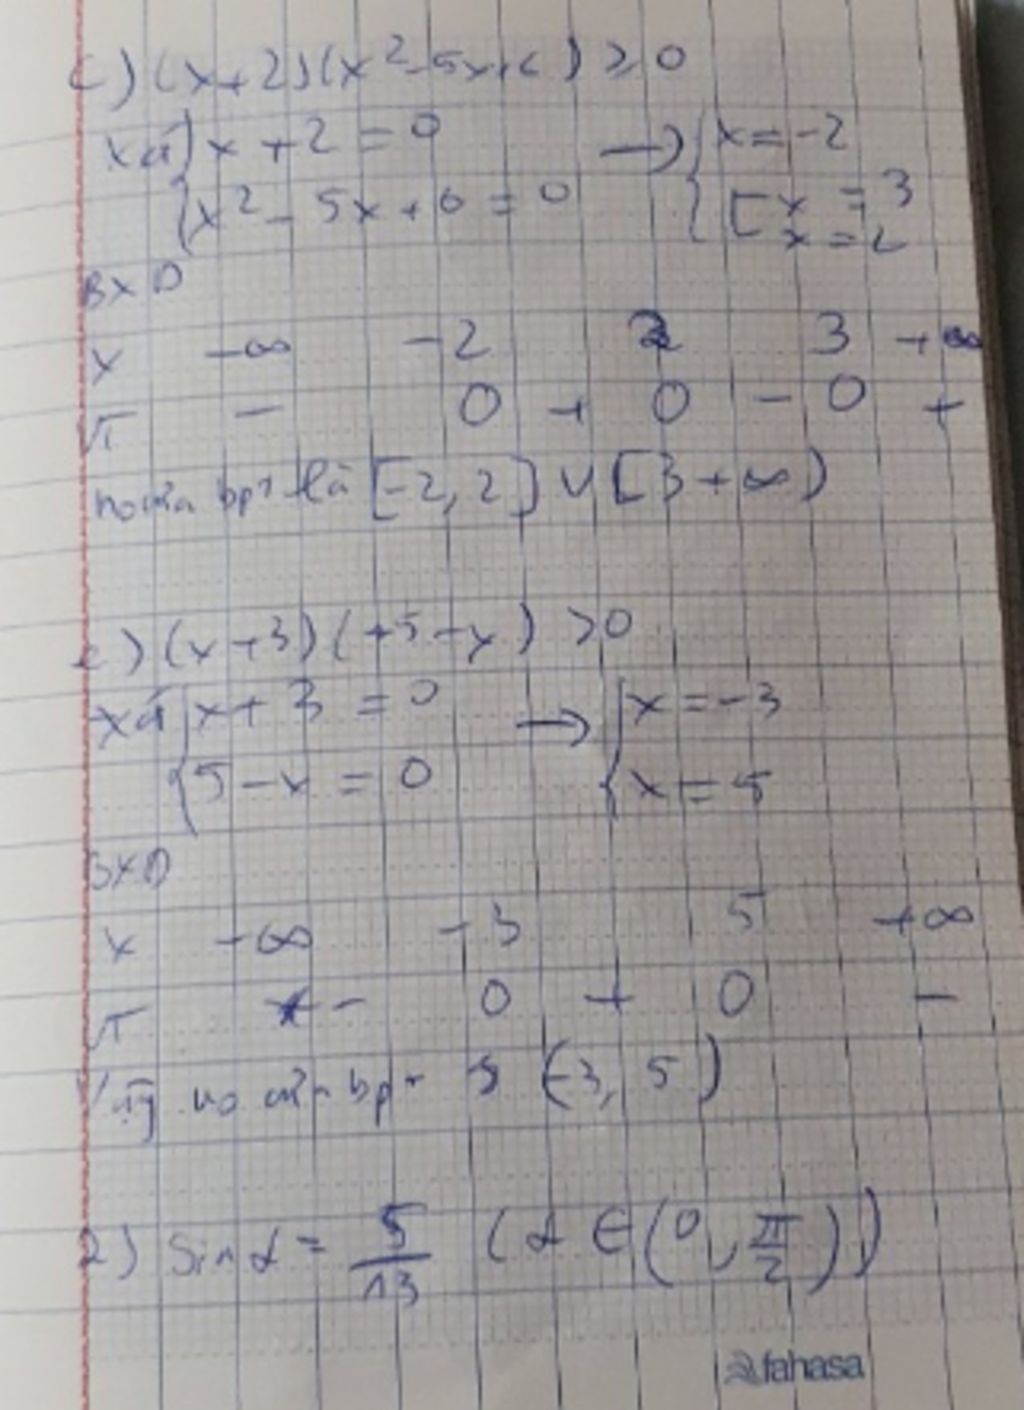 c) (x+2)(x² - 5x + 6) ≥ 0
Xét { x + 2 = 0 → { x = -2
{ x² - 5x + 6 = 0 { [ x = 3
x = 2
BXD
x -∞ -2 2 3 +∞
VT - 0 + 0 - 0 +
no của bpt là [-2, 2] ∪ [3 + ∞)
e) (x+3)(+5-x) > 0
Xét { x + 3 = 0 → { x = -3
{ 5 - x = 0 { x = 5
BXD
x -∞ -3 5 +∞
VT - 0 + 0 -
Vậy no của bpt (-3, 5)
2) Sin α = 5/13 (α ∈ (0, π/2))
fahasa